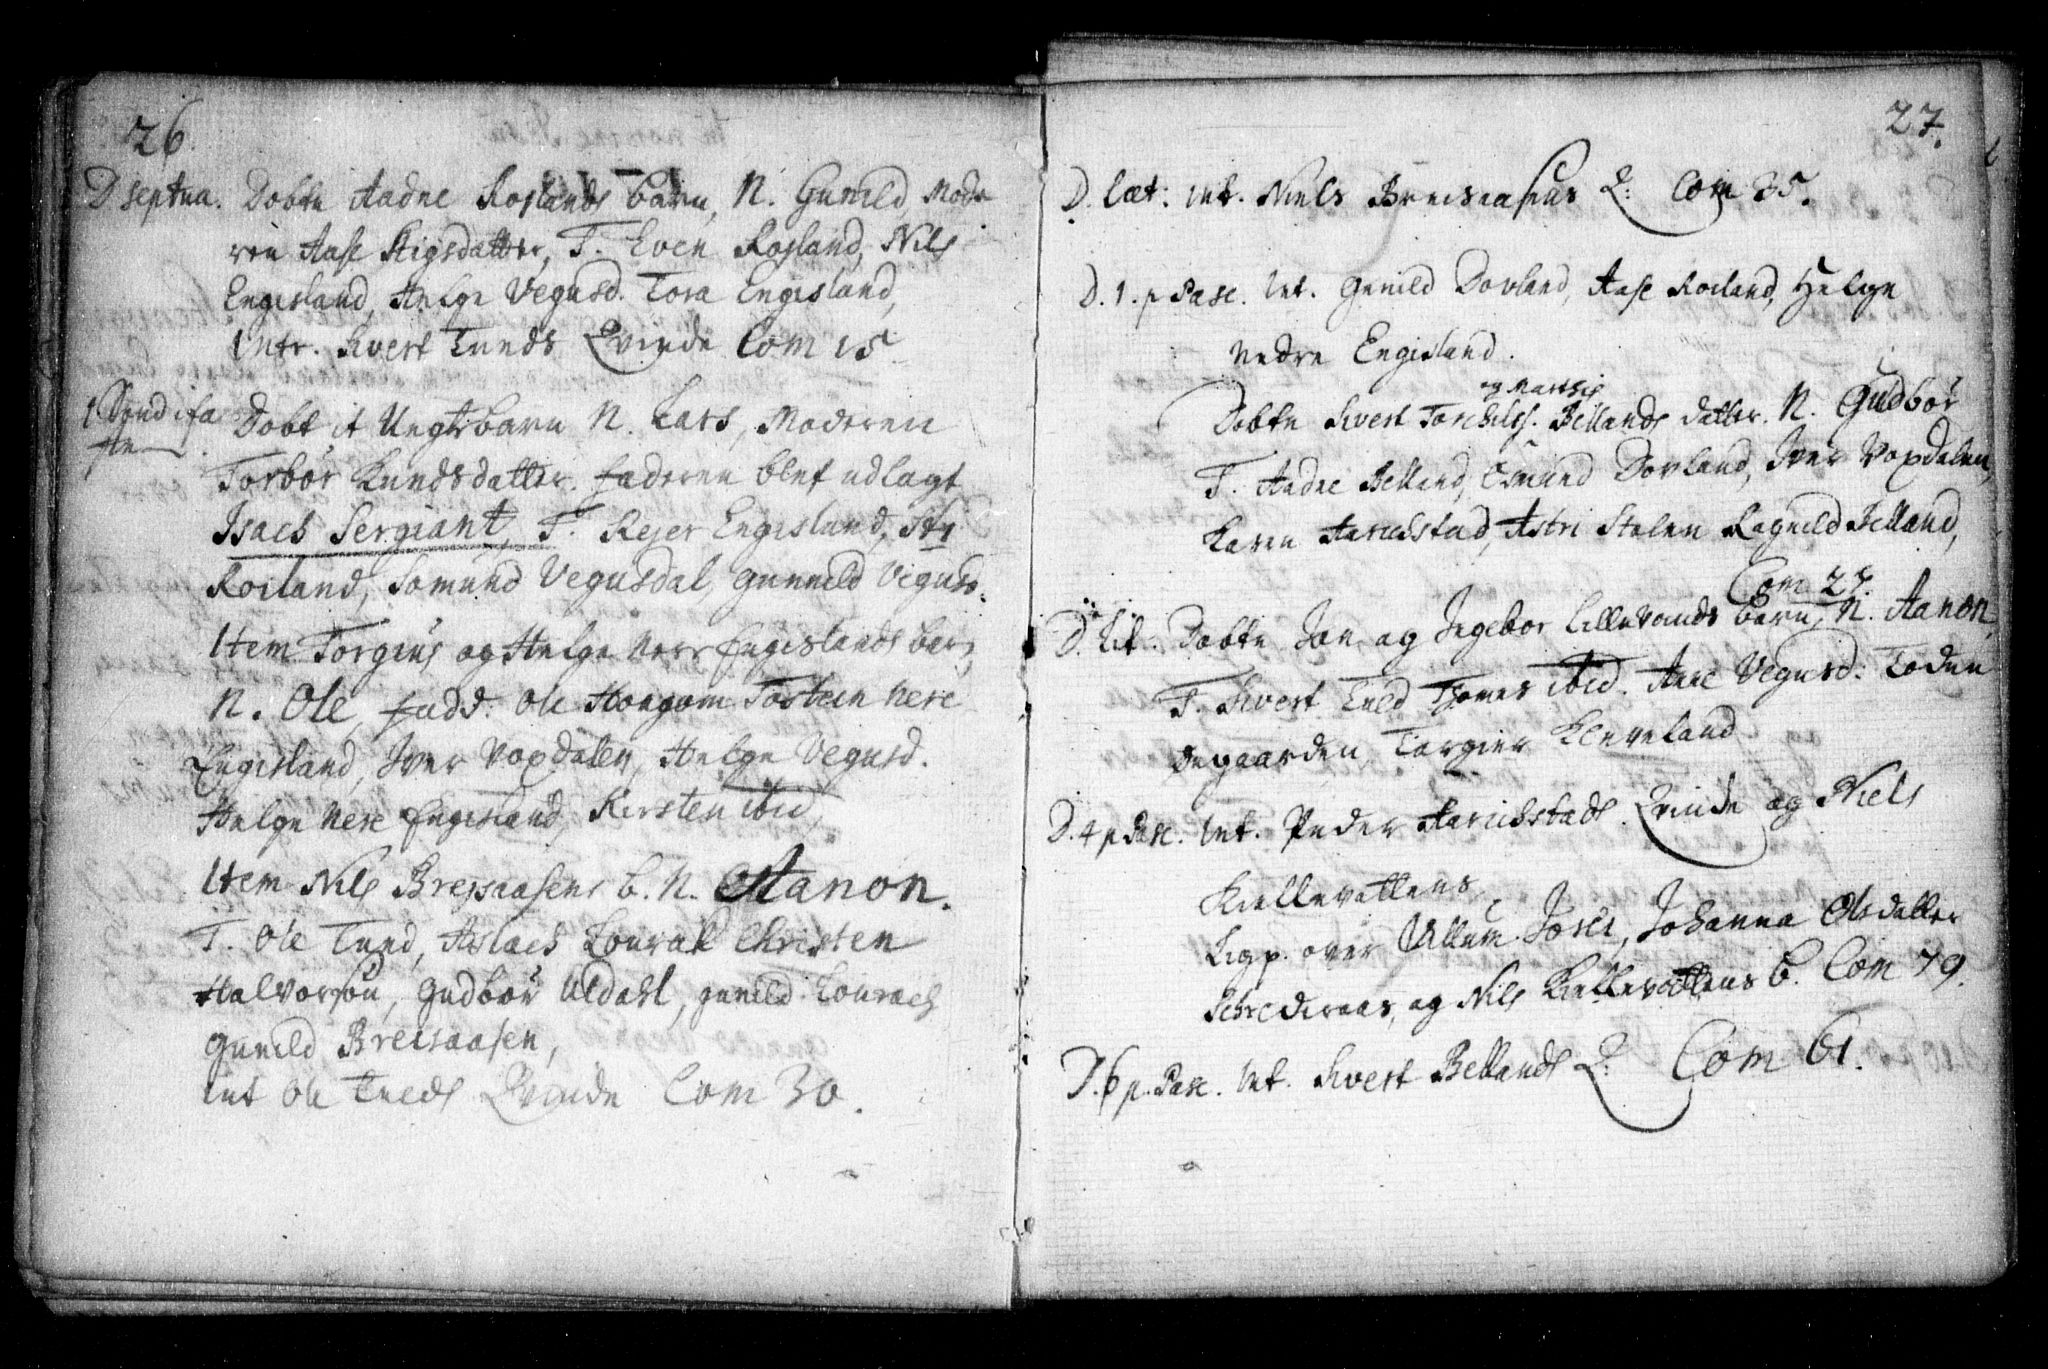 26.
D septua. Dobte Aadne Roslands barn, N. Gunild, Mode
ren Aase Stigsdatter, F. Even Rosland, Nils
Engesland, Helge Vegusd. Tora Engesland,
Intr. Sivert Tveds Qvinde Com 15
1 Sønd i fa Dobt it Uegte barn N. Lars, Moderen
ste
Torbør Knudsdatter. faderen blef udlagt
Isach Sergiant, F. Rejer Engesland,
Roiland, Somund Vegusdal, Gunnild Vegusd.
Item Torgius og Helge Nere Engeslands barn
N. Ole, fadd: Ole Hougom Tosteen Nere
Engisland, Iver Voxdalen, Helge Vegusd.
Helge Nere Engesland, Kirsten ibid
Item Nils Breisaasens b. N. Aanon.
F. Ole Tued, Aslach Lourak Christen
Halvorson, Gudbør Uldahl, gunild Lourach
Gunild Breisaasen,
Int Ole Tveds Qvinde Com 30.
27.
D. læt: Int. Niels Breisaasens Q: Com 35.
D. 1. p Pasc. Int. Gunild Dovland, Aase Roiland, Helge
nedre Engisland.
Dobte Sivert Torchils. Bellands datter. N. Gudbør
F. Aadne Belland, Osmund Dovland, Iver Voxdalen,
Karen Aarichstad, Astri Stolen Ragnild Belland,
Com 27.
D. Dobte Jon og Ingebor Lillevands barn, N. Aanon,
F. Sivert Tved Thomes ibid. Anne Vegusd: Toden
Øegaarden, Targier Kleveland
D. 4 p Pasc. Int. Peder Aarichstads Qvinde og Niels
Kiellevattens
Ligp. over Villum Josch, Johanna Olsdatter
Schrederaas, og Nils Kiellevattens b. Com 79.
D. 6 p. Pasc. Int. Sivert Bellands Q: Com 61.